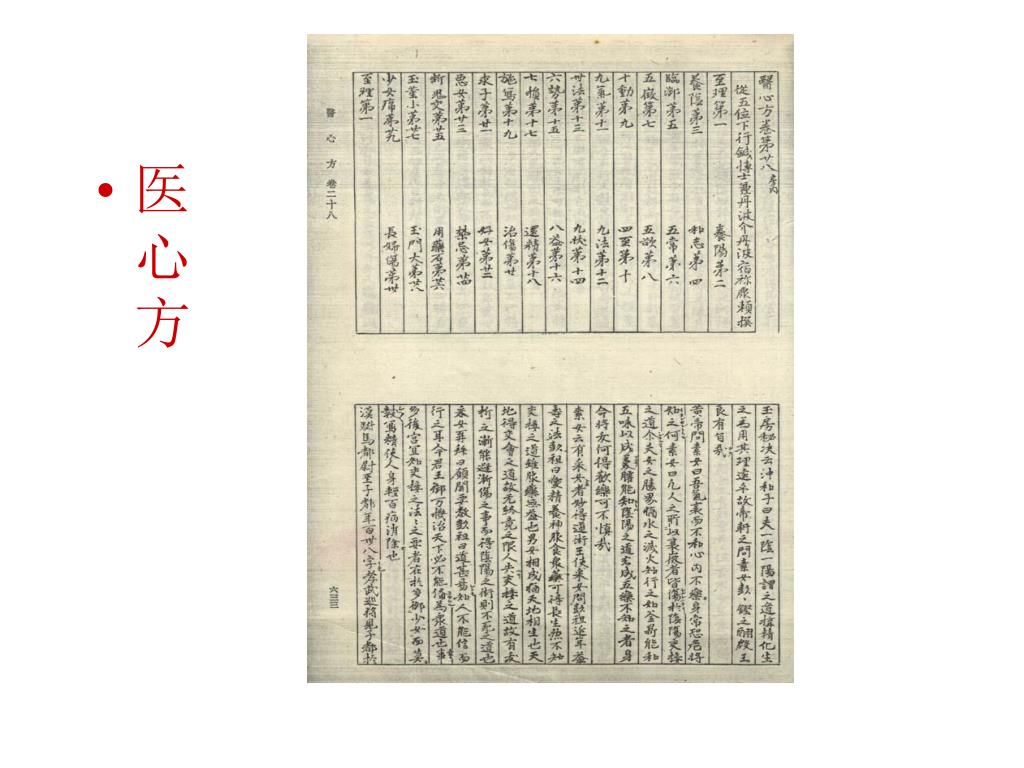 • 医心方
醫心方卷第廿八 房内
從五位下行鍼博士兼丹波介丹波宿祢康賴撰
至理第一 養陽第二
養陰第三 和志第四
臨御第五 五常第六
五徵第七 五欲第八
十動第九 四至第十
九氣第十一 九法第十二
卅法第十三 九狀第十四
六勢第十五 八益第十六
七損第十七 還精第十八
施寫第十九 治傷第廿
求子第廿一 好女第廿二
惡女第廿三 禁忌第廿四
斷鬼交第廿五 用藥石第廿六
玉莖小第廿七 玉門大第廿八
少女痛第廿九 長婦傷第卅
至理第一
醫心方 卷二十八
玉房秘决云沖和子曰夫一陰一陽謂之道搆精化生
之為用其理遠乎故帝軒之問素女彭鏗之酬殷王
良有旨哉
黃帝問素女曰吾氣衰而不和心内不樂身常恐危將
如之何素女曰凡人之所以衰微者皆傷於陰陽交接
之道尒夫女之勝男猶水之滅火知行之如釜鼎能和
五味以成羹臛能知陰陽之道悉成五樂不知之者身
命將夭何得歡樂可不慎哉
素女云有采女者妙得道術王使采女問彭祖延年益
壽之法彭祖曰愛精養神服食衆藥可得長生然不知
交接之道雖服藥無益也男女相成猶天地相生也天
地得交會之道故無終竟之限人失交接之道故有夭
折之漸能避漸傷之事而得陰陽之術則不死之道也
采女再拜曰願聞要教彭祖曰道甚易知人不能信而
行之耳今君王御万機治天下必不能備為衆道也幸
多後宮宜知交接之法之要者在於多御少女而莫
數寫精使人身輕百病消除也
漢駙馬都尉巫子都年百卅八字孝武巡狩見子都於
六三三